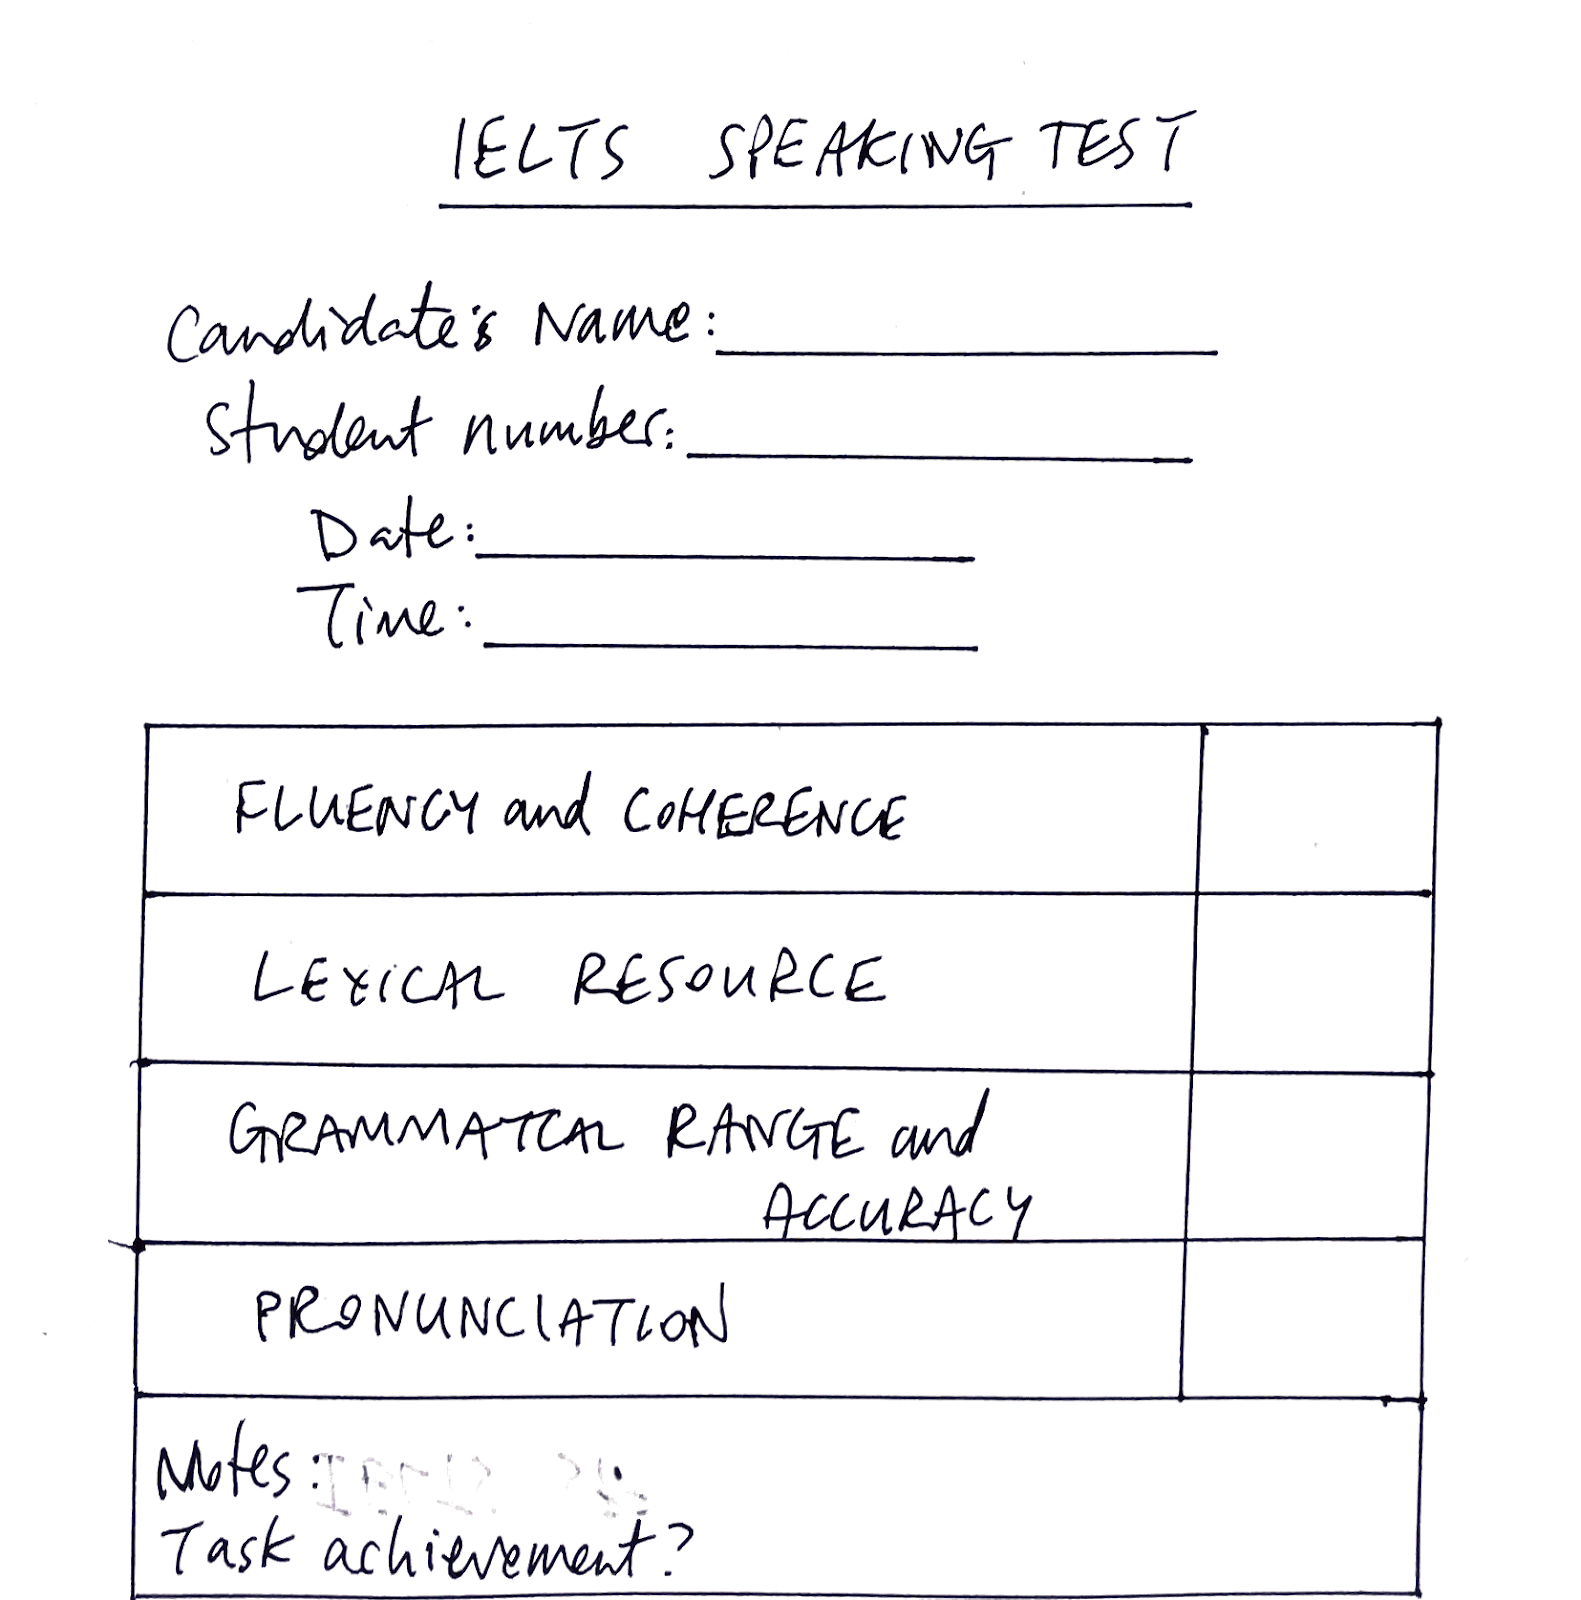 IELTS SPEAKING TEST
Candidate's Name:
Student number:
Date:
Time:
FLUENCY and COHERENCE
LEXICAL RESOURCE
GRAMMATCAL RANGE and
ACCURACY
PRONUNCIATION
Notes:
Task achievement?